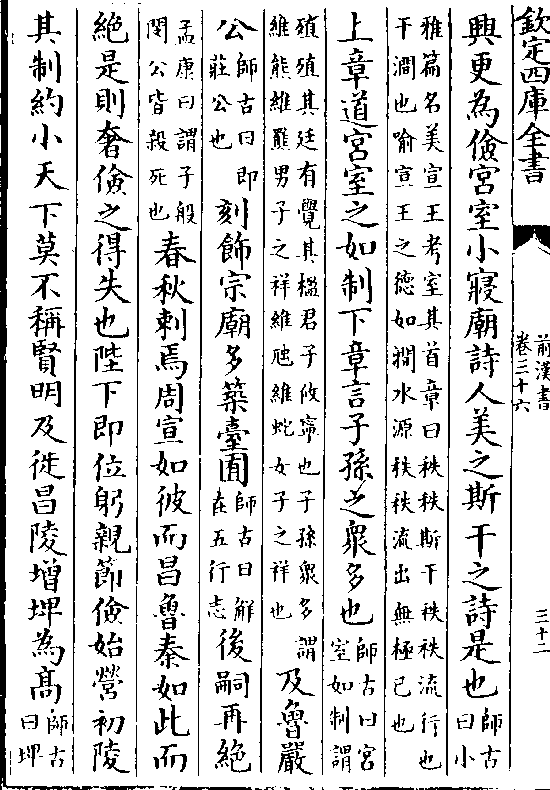 欽定四庫全書
前漢書
卷三十六
三十二
興更為儉宮室小寢廟詩人美之斯干之詩是也師古曰小
雅篇名美宣王考室其首章曰秩秩斯干秩秩流行也
干澗也喻宣王之德如澗水源秩秩流出無極已也
上章道宮室之如制下章言子孫之衆多也師古曰宮室如制謂
殖殖其廷有覺其楹君子攸寧也子孫衆多謂
維熊維羆男子之祥維虺維蛇女子之祥也
及魯嚴
公師古曰即莊公也刻飾宗廟多築臺囿師古曰解在五行志後嗣再絕
孟康曰謂子般閔公皆殺死也春秋刺焉周宣如彼而昌魯秦如此而
絕是則奢儉之得失也陛下即位躬親節儉始營初陵
其制約小天下莫不稱賢明及徙昌陵增埤為髙師古曰埤